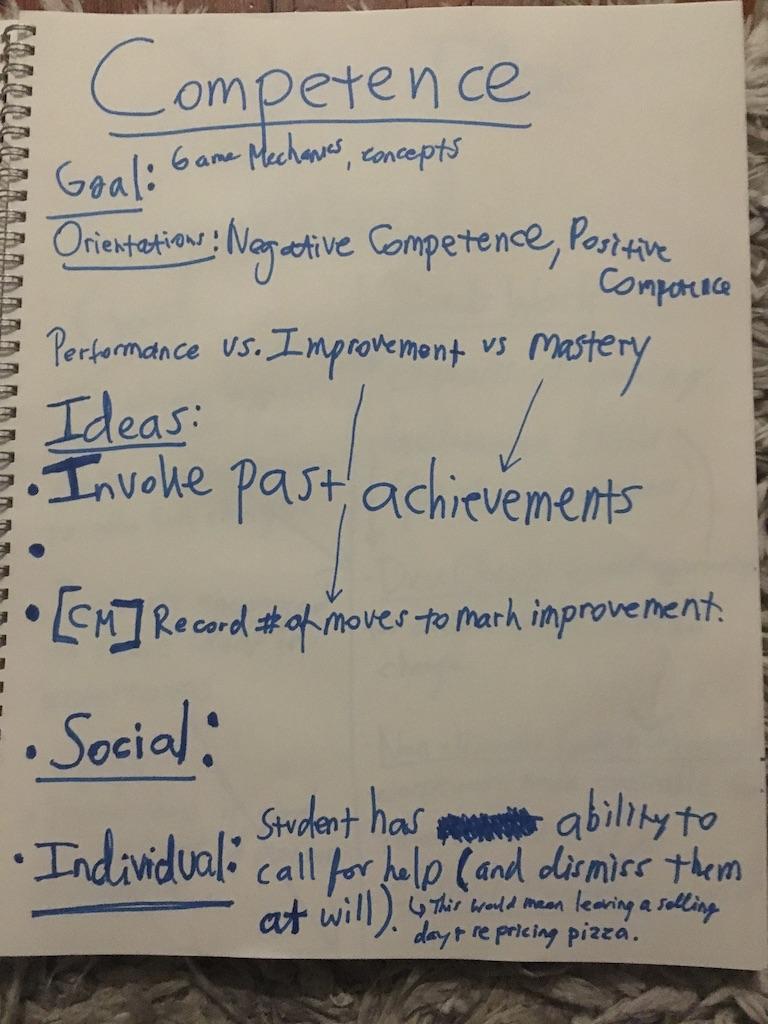 Competence
Goal: Game Mechanics, concepts
Orientations: Negative Competence, Positive
Competence
Performance vs. Improvement vs mastery
Ideas:
• Invoke past achievements
•
• [CM] Record # of moves to mark improvement.
• Social:
• Individual: Student has ability to
call for help (and dismiss them
at will). ↳ This would mean leaving a selling
day + repricing pizza.